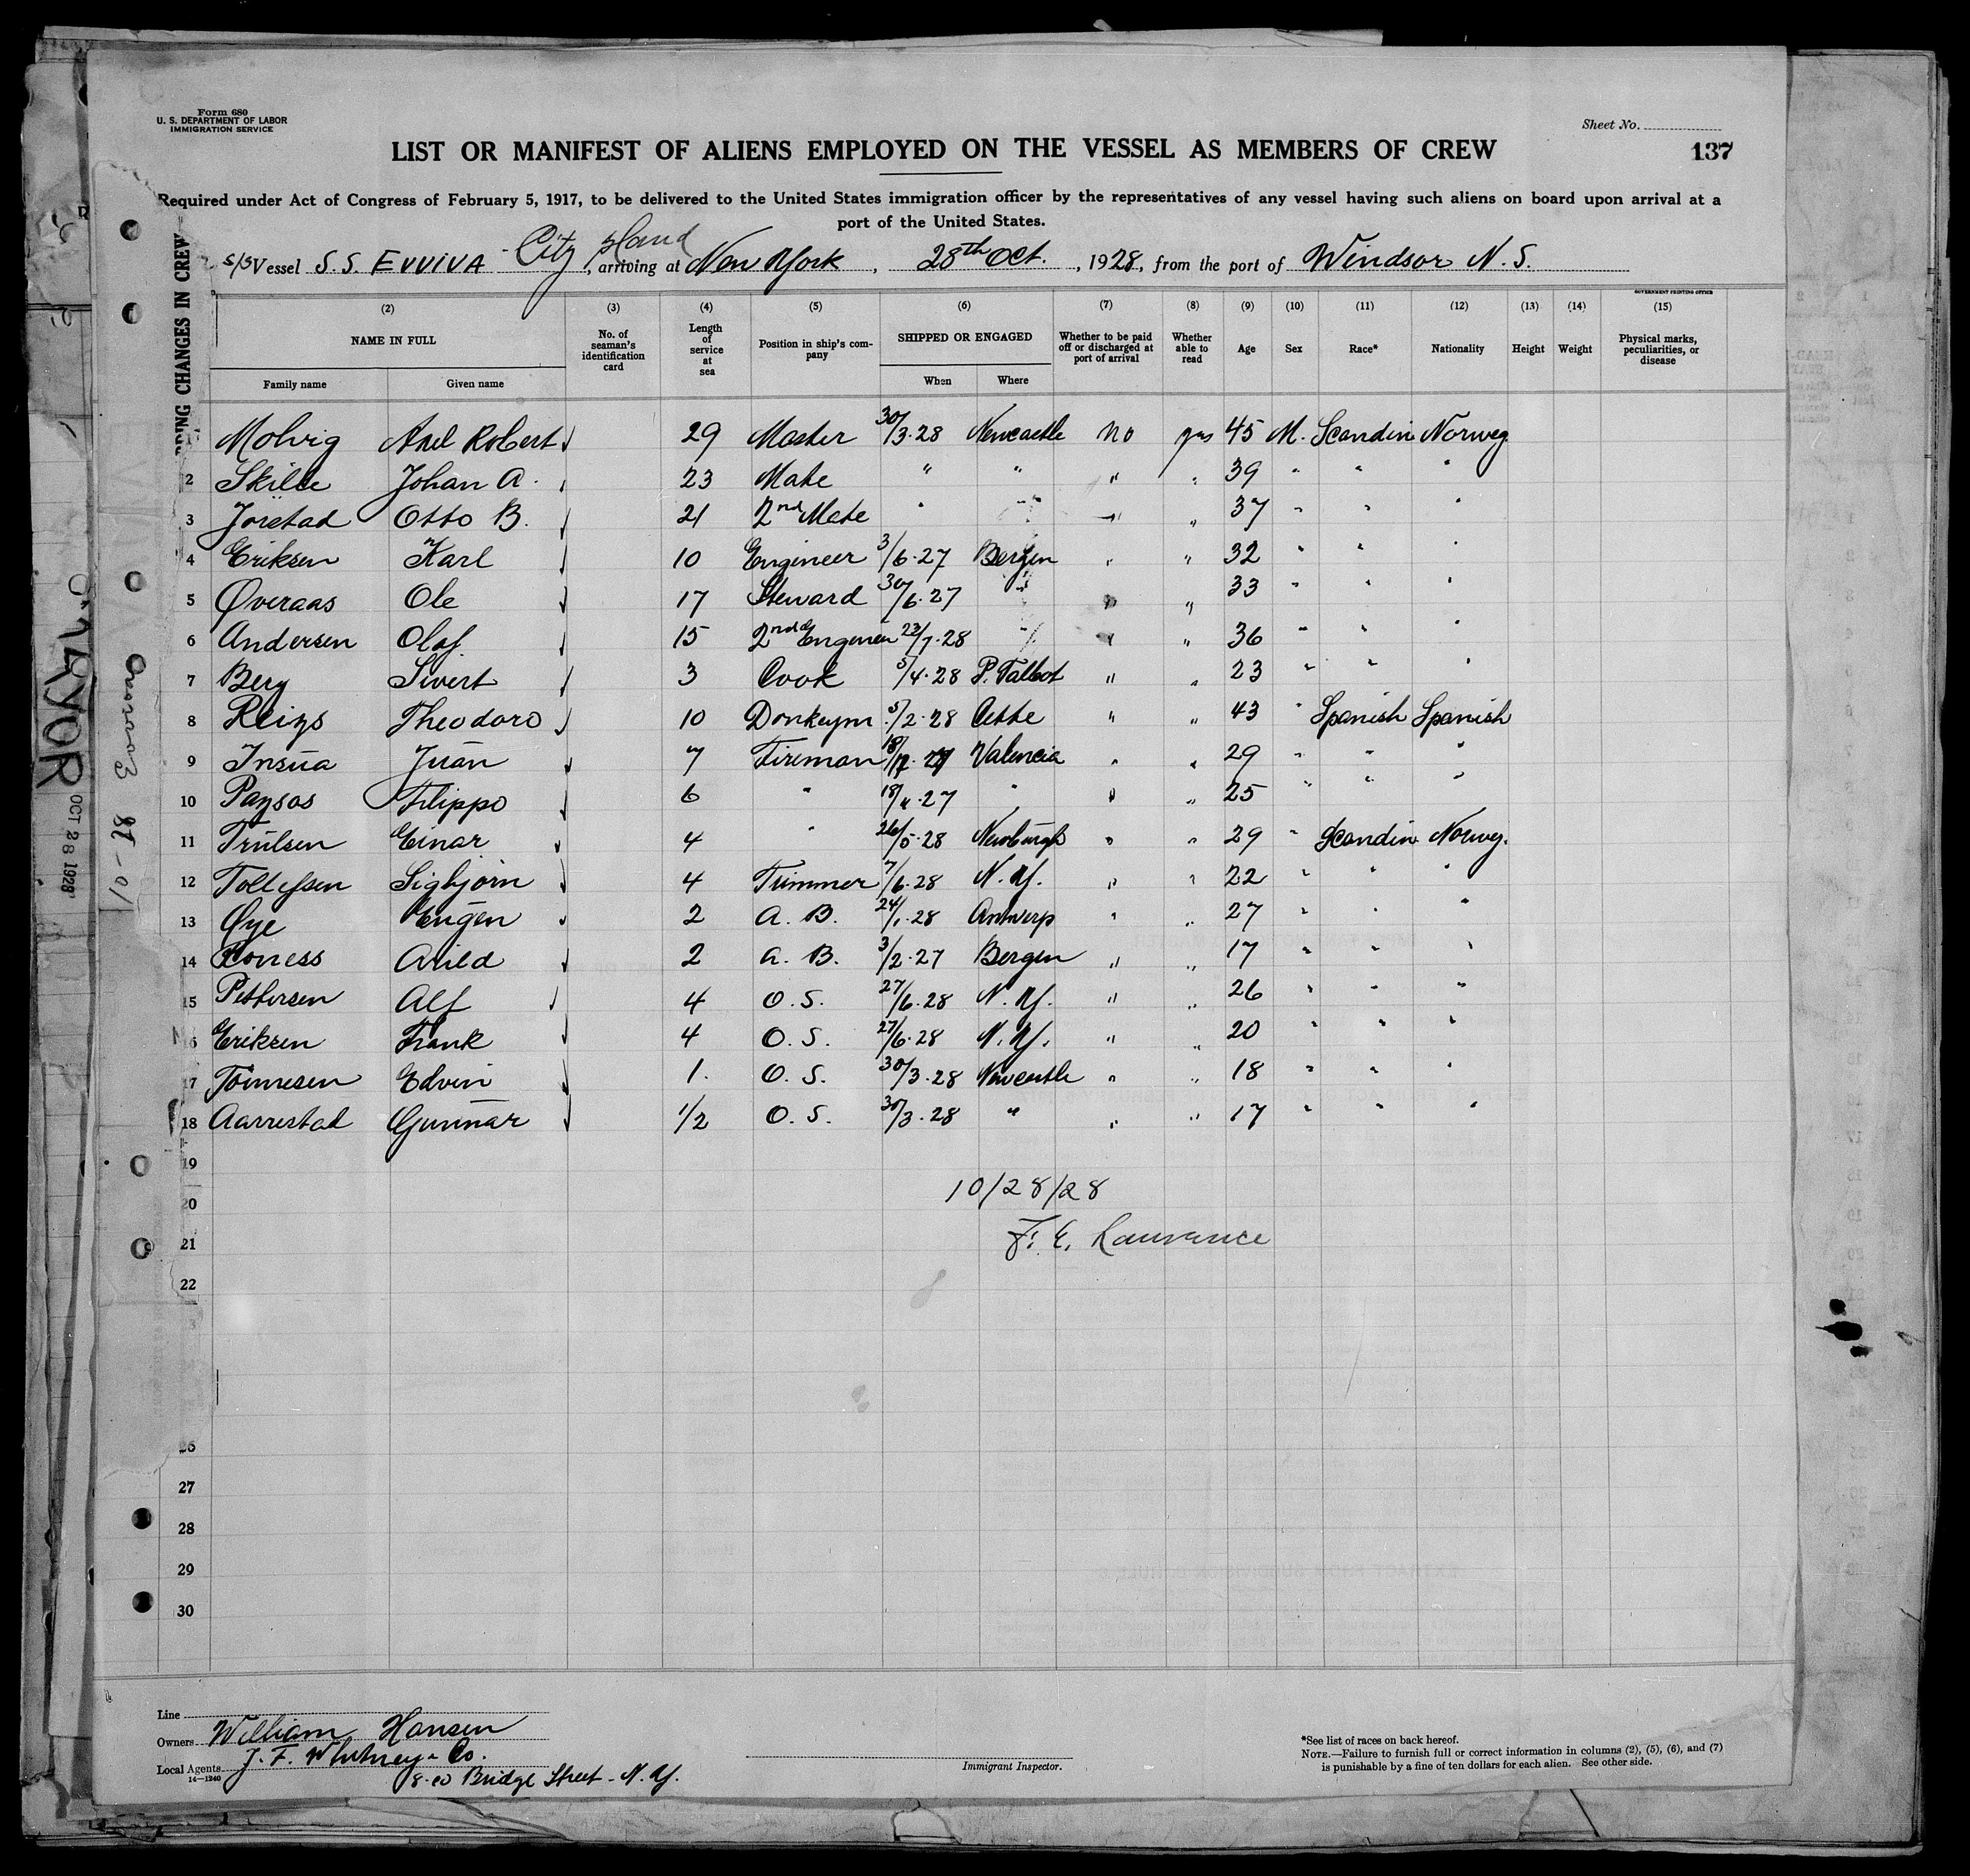 Form 680
U. S. DEPARTMENT OF LABOR
IMMIGRATION SERVICE
Sheet No.
LIST OR MANIFEST OF ALIENS EMPLOYED ON THE VESSEL AS MEMBERS OF CREW
137
Required under Act of Congress of February 5, 1917, to be delivered to the United States immigration officer by the representatives of any vessel having such aliens on board upon arrival at a
port of the United States.
City Island
S/S Vessel S.S. EVVIVA, arriving at New York, 28th Oct., 1928, from the port of Windsor N.S.
GOVERNMENT PRINTING OFFICE
(2) (3) (4) (5) (6) (7) (8) (9) (10) (11) (12) (13) (14) (15)
NAME IN FULL No. of seaman's identification card Length of service at sea Position in ship's company SHIPPED OR ENGAGED Whether to be paid off or discharged at port of arrival Whether able to read Age Sex Race* Nationality Height Weight Physical marks, peculiarities, or disease
Family name Given name When Where
Molvig Axel Robert √ 29 Master 30/3.28 Newcastle No yes 45 M. Scandin Norweg
2 Skille Johan A. 23 Mate " " " " 39 " " "
3 Jorstad Otto B. √ 21 2nd Mate " " " " 37 " " "
4 Eriksen Karl √ 10 Engineer 3/6.27 Bergen " " 32 " " "
5 Øveraas Ole √ 17 Steward 30/6.27 " " " 33 " " "
6 Andersen Olaf √ 15 2nd Engineer 23/7.28 " " " 36 " " "
7 Berg Sivert √ 3 Cook 5/4.28 P. Talbot " " 23 " " "
8 Reigs Theodoro √ 10 Donkeym. 5/2.28 Cette " " 43 " Spanish Spanish
9 Insua Juan √ 7 Fireman 18/ 27 Valencia " " 29 " " "
10 Paysos Filippo √ 6 " 18/ 27 " " " 25 " " "
11 Trulsen Einar √ 4 " 26/5.28 Newburgh " " 29 " Scandin Norweg.
12 Tollefsen Sigbjorn √ 4 Trimmer 7/6.28 N.Y. " " 22 " " "
13 Øye Eugen √ 2 A. B. 24/1.28 Antwerp " " 27 " " "
14 Arild √ 2 A. B. 3/2.27 Bergen " " 17 " " "
15 Pettersen Alf √ 4 O. S. 27/6.28 N.Y. " " 26 " " "
16 Eriksen Frank √ 4 O. S. 27/6.28 N.Y. " " 20 " " "
17 Tønnesen Edvin √ 1. O. S. 30/3.28 Newcastle " " 18 " " "
18 Aarrestad Gunnar √ 1/2 O. S. 30/3.28 " " " 17 " " "
19
20
10/28/28
21
F. E. Lawrance
22
26
27
28
29
30
Line
Owners William Hansen
Local Agents J. F. Whitney & Co.
14—1240
8-10 Bridge Street - N.Y.
Immigrant Inspector.
*See list of races on back hereof.
NOTE.—Failure to furnish full or correct information in columns (2), (5), (6), and (7)
is punishable by a fine of ten dollars for each alien. See other side.
OCT 28 1928
CHANGES IN CREW